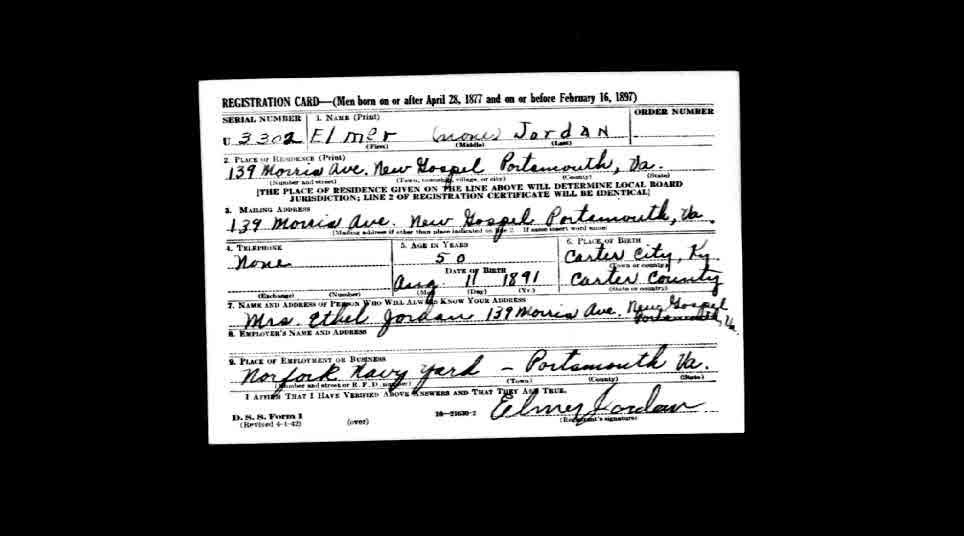 REGISTRATION CARD—(Men born on or after April 28, 1877 and on or before February 16, 1897)
SERIAL NUMBER 1. NAME (Print) ORDER NUMBER
U 3302 Elmer (none) Jordan
(First) (Middle) (Last)
2. PLACE OF RESIDENCE (Print)
139 Morris Ave. New Gospel Portsmouth, Va.
(Number and street) (Town, township, village, or city) (County) (State)
[THE PLACE OF RESIDENCE GIVEN ON THE LINE ABOVE WILL DETERMINE LOCAL BOARD
JURISDICTION; LINE 2 OF REGISTRATION CERTIFICATE WILL BE IDENTICAL]
3. MAILING ADDRESS
139 Morris Ave. New Gospel Portsmouth, Va.
[Mailing address if other than place indicated on line 2. If same insert word same]
4. TELEPHONE 5. AGE IN YEARS 6. PLACE OF BIRTH
None 50 Carter City, Ky.
(Town or county)
DATE OF BIRTH
Aug 11 1891 Carter County
(Exchange) (Number) (Mo.) (Day) (Yr.) (State or country)
7. NAME AND ADDRESS OF PERSON WHO WILL ALWAYS KNOW YOUR ADDRESS
Mrs. Ethel Jordan 139 Morris Ave. New Gospel
Portsmouth, Va.
8. EMPLOYER'S NAME AND ADDRESS
9. PLACE OF EMPLOYMENT OR BUSINESS
Norfork Navy Yard – Portsmouth Va.
(Number and street or R. F. D. number) (Town) (County) (State)
I AFFIRM THAT I HAVE VERIFIED ABOVE ANSWERS AND THAT THEY ARE TRUE.
D. S. S. Form 1 16—21630-2 Elmer Jordan
(Revised 4-1-42) (over) (Registrant's signature)